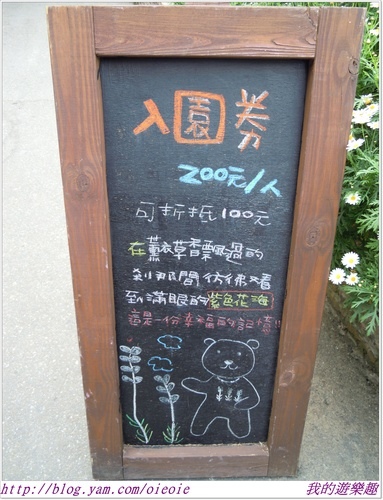 我的遊樂趣
入園券
200元/人
可折抵100元
在薰衣草香飄過的
剎那間彷彿看
到滿眼的紫色花海
這是一份幸福的記憶!!
http://blog.yam.com/oieoie
我的遊樂趣